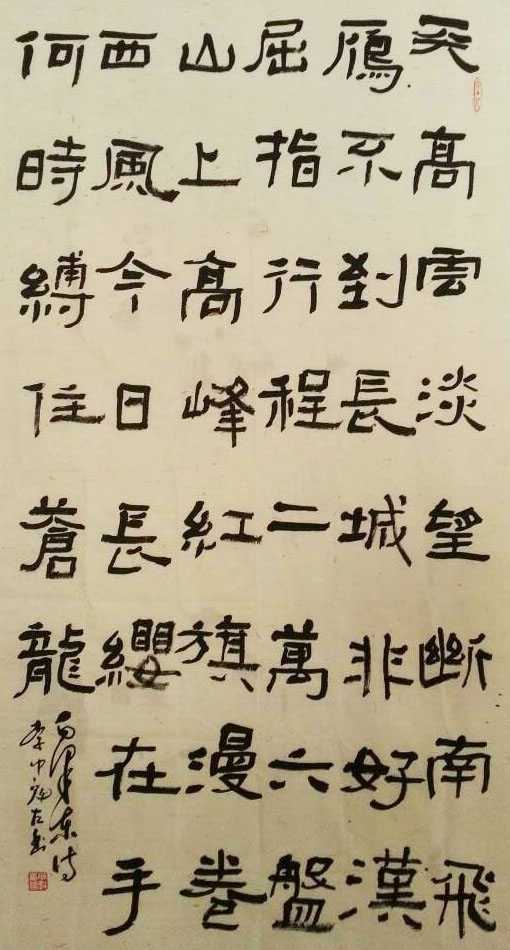 天高雲淡望斷南飛
鴈不到長城非好漢
屈指行程二萬六盤
山上高峰紅旗漫卷
西風今日長纓在手
何時縛住蒼龍
毛澤東詩